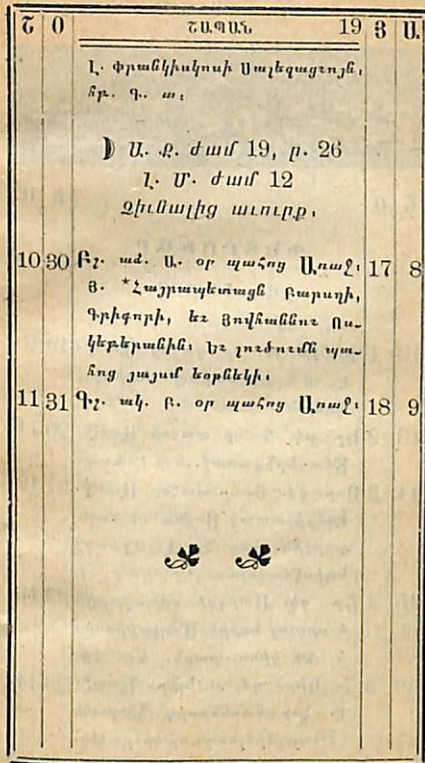 Շ Օ ՇԱՊԱՆ 19 Յ Ա
Լ. Փրանկիսկոսի Սալեզացւոյն,
հր. գ. ա.
☽ Ա. Ք. ժամ 19, ր. 26
Լ. Մ. ժամ 12
Ձիւնալից աւուրք.
10 30 Բշ. աձ. Ա. օր պահոց Առաջ. 17 8
Յ. *Հայրապետացն Բարսղի,
Գրիգորի, եւ Յովհաննու Ոս-
կեբերանին. Եւ լուծումն պա-
հոց յայսմ երեկի.
11 31 Գշ. ակ. Բ. օր պահոց Առաջ. 18 9